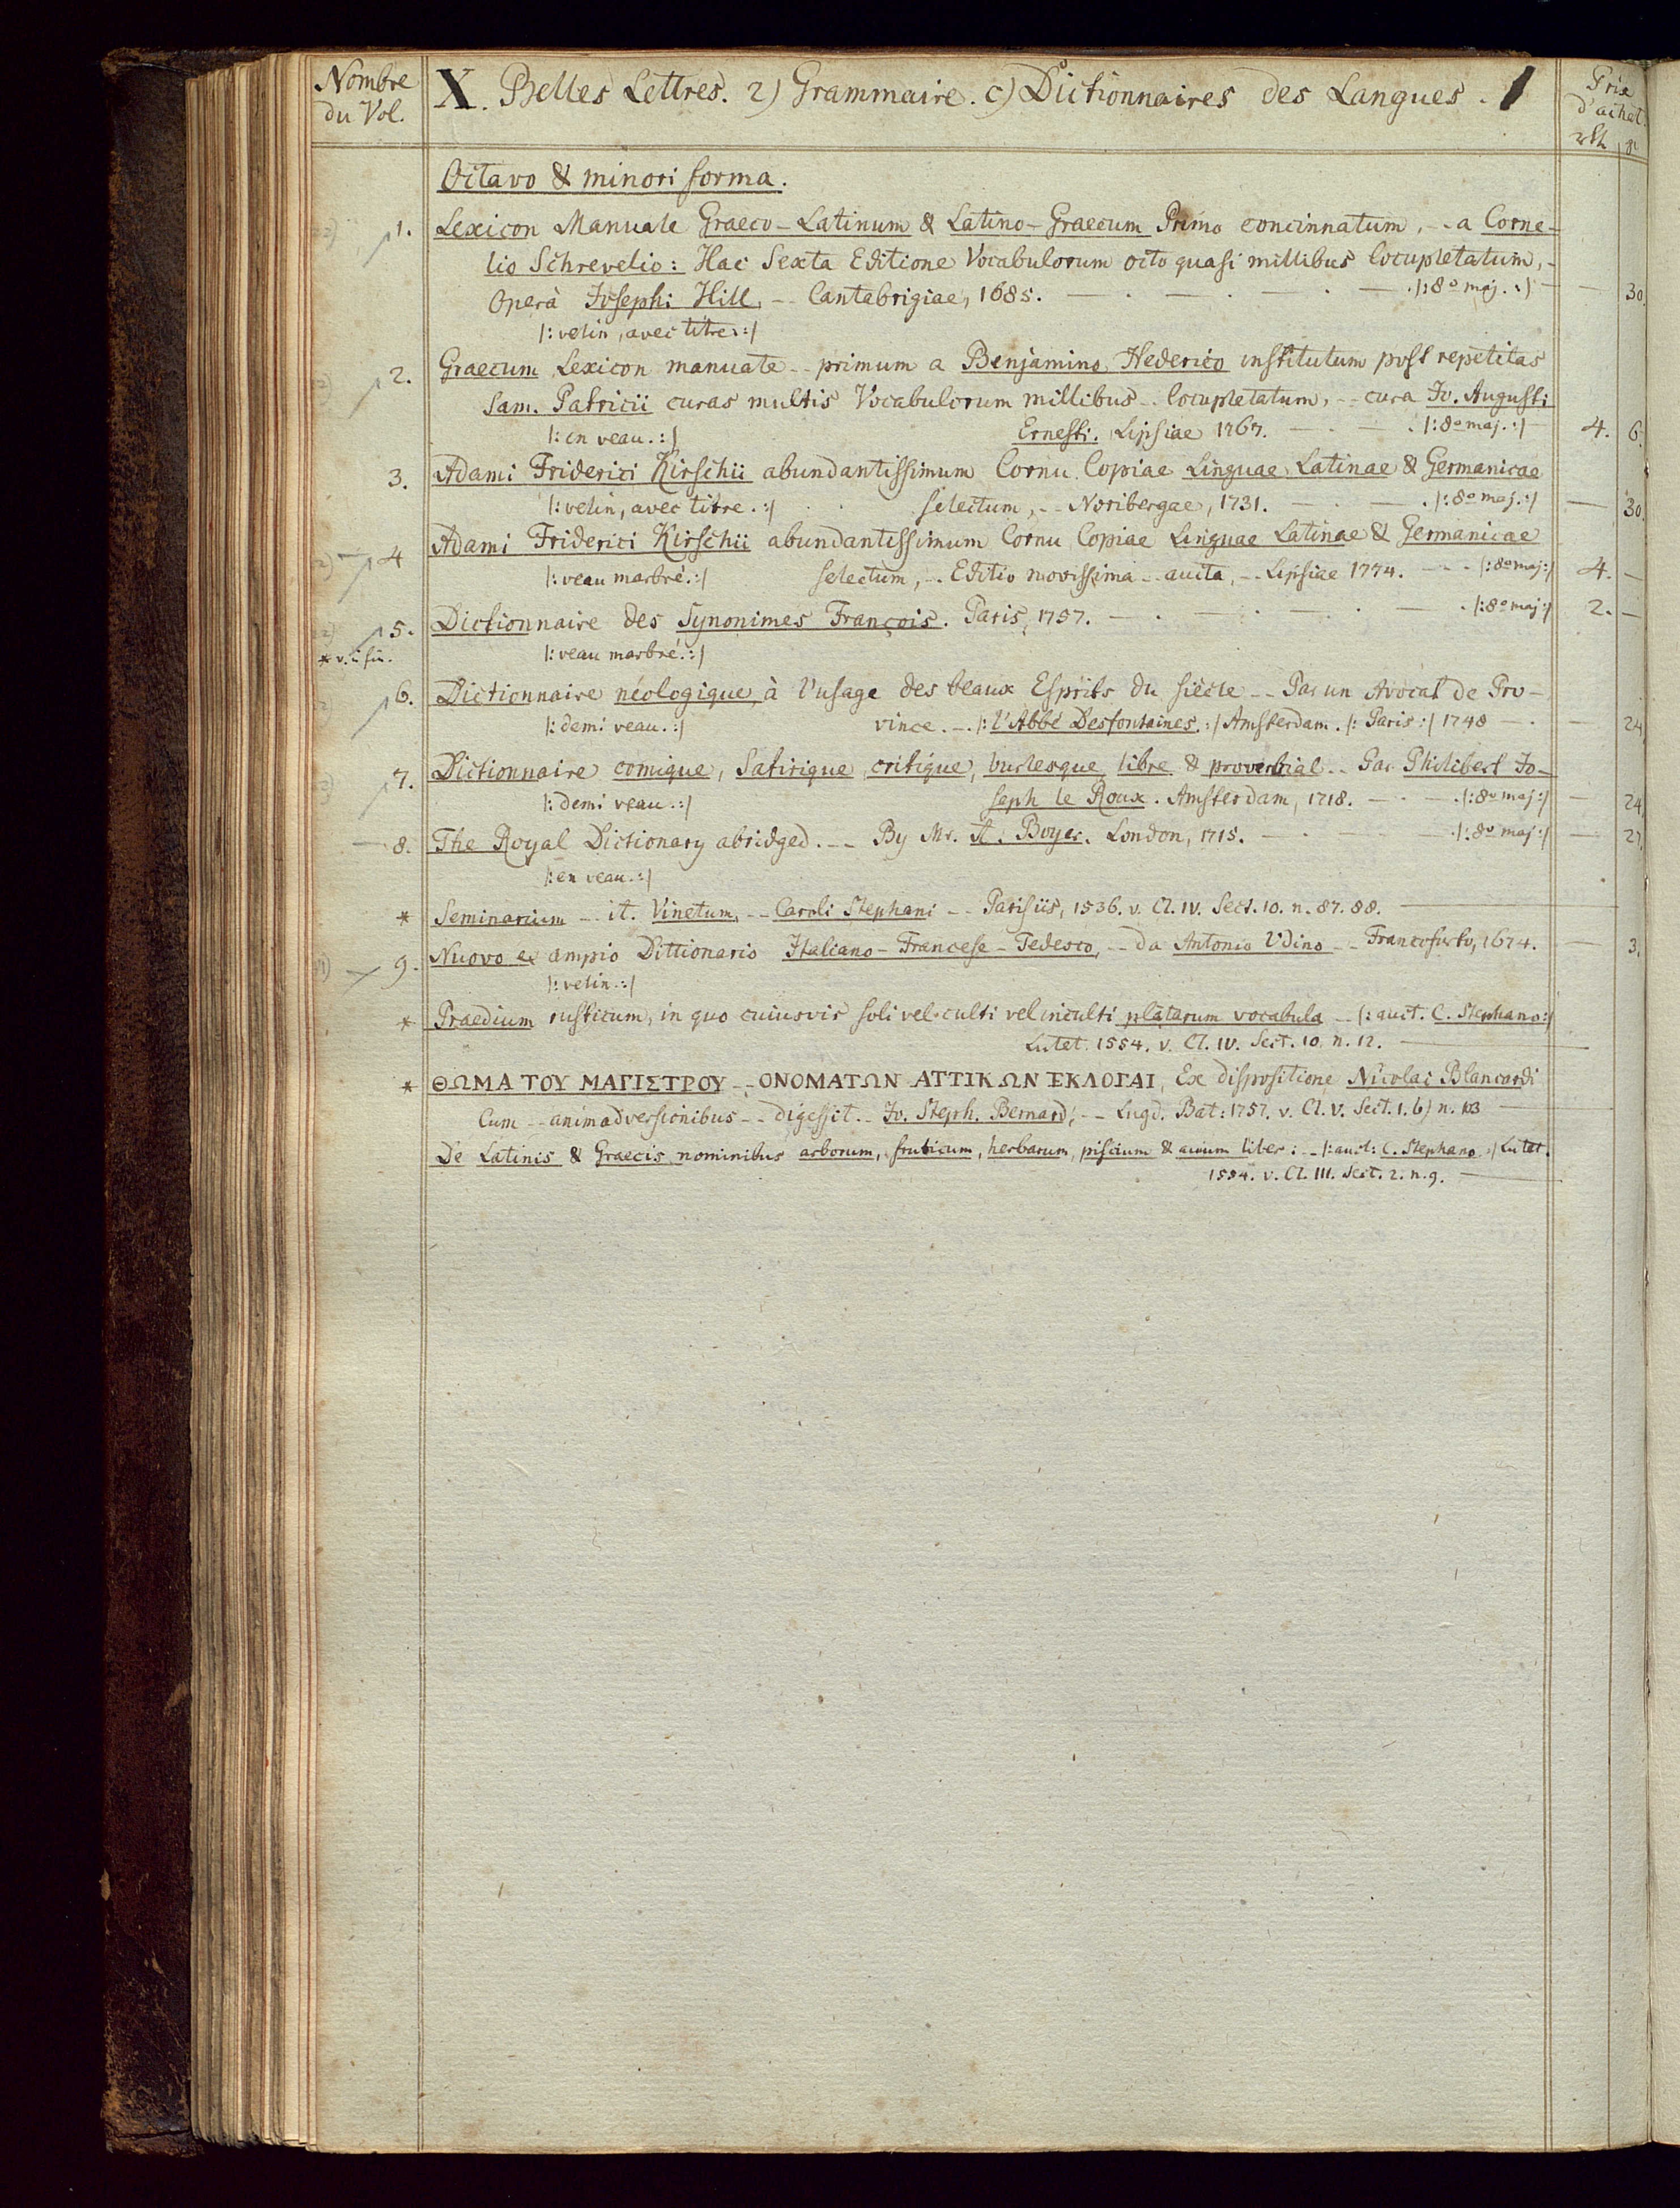 Nombre du Vol.
X. Belles Lettres. 2) Grammaire. c) Dictionnaires des Langues. 1
Prix d'achat.
Octavo & minori forma.
1. Lexicon Manuale Graeco-Latinum & Latino-Graecum Primo concinnatum, -- a Corne-
lio Schrevelio: Hac Sexta Editione Vocabulorum octo quasi millibus locupletatum, -
Operâ Josephi Hill, -- Cantabrigiae, 1685. |: 8º maj. :| — 30.
|: velin, avec titre. :|
2. Graecum Lexicon manuale -- primum a Benjamino Hederico institutum post repetitas
Sam. Patricii curas multis Vocabulorum millibus -- locupletatum, -- cura Jo. Augusti
|: en veau. :| Ernesti. Lipsiae 1767. |: 8º maj. :| 4. 6.
3. Adami Friderici Kirschii abundantissimum Cornu Copiae Linguae Latinae & Germanicae
|: velin, avec titre. :| selectum, -- Noribergae, 1731. |: 8º maj. :| — 30.
4 Adami Friderici Kirschii abundantissimum Cornu Copiae Linguae Latinae & Germanicae
|: veau marbré. :| selectum, -- Editio novissima -- aucta, -- Lipsiae 1774. |: 8º maj :| 4. —
5. Dictionnaire des Synonimes François. Paris, 1757. |: 8º maj :| 2. —
* v. i. fin. |: veau marbré. :|
6. Dictionnaire néologique, à l'usage des beaux Esprits du siècle -- Par un Avocat de Pro-
|: demi veau. :| vince. -- |: l'Abbé Desfontaines. :| Amsterdam. |: Paris :| 1748 — 24.
7. Dictionnaire comique, Satirique, critique, burlesque, libre & proverbial -- Par Philibert Jo-
|: demi veau. :| seph le Roux. Amsterdam, 1718. |: 8º maj :| — 24.
8. The Royal Dictionary abridged. -- By Mr. A. Boyer. London, 1715. |: 8º maj :| — 27.
|: en veau. :|
* Seminarium -- it. Vinetum, -- Caroli Stephani -- Parisiis, 1536. v. Cl. IV. Sect. 10. n. 87. 88.
9. Nuovo et ampio Dittionario Italiano-Francese-Tedesco, -- Da Antonio Udino -- Francoforto, 1674. — 3.
|: velin. :|
* Praedium rusticum, in quo cuiusvis soli vel culti vel inculti platarum vocabula -- |: auct. C. Stephano :|
Lutet. 1554. v. Cl. IV. Sect. 10. n. 12.
* ΘΩΜΑ ΤΟΥ ΜΑΓΙΣΤΡΟΥ -- ΟΝΟΜΑΤΩΝ ΑΤΤΙΚΩΝ ΕΚΛΟΓΑΙ, Ex dispositione Nicolai Blancardi
Cum -- animadversionibus -- digessit -- Jo. Steph. Bernard; -- Lugd. Bat: 1757. v. Cl. V. Sect. 1. b) n. 103
De Latinis & Graecis nominibus arborum, fruticum, herbarum, piscium & avium liber: -- |: auct: C. Stephano :| Lutet.
1554. v. Cl. III. Sect. 2. n. 9.